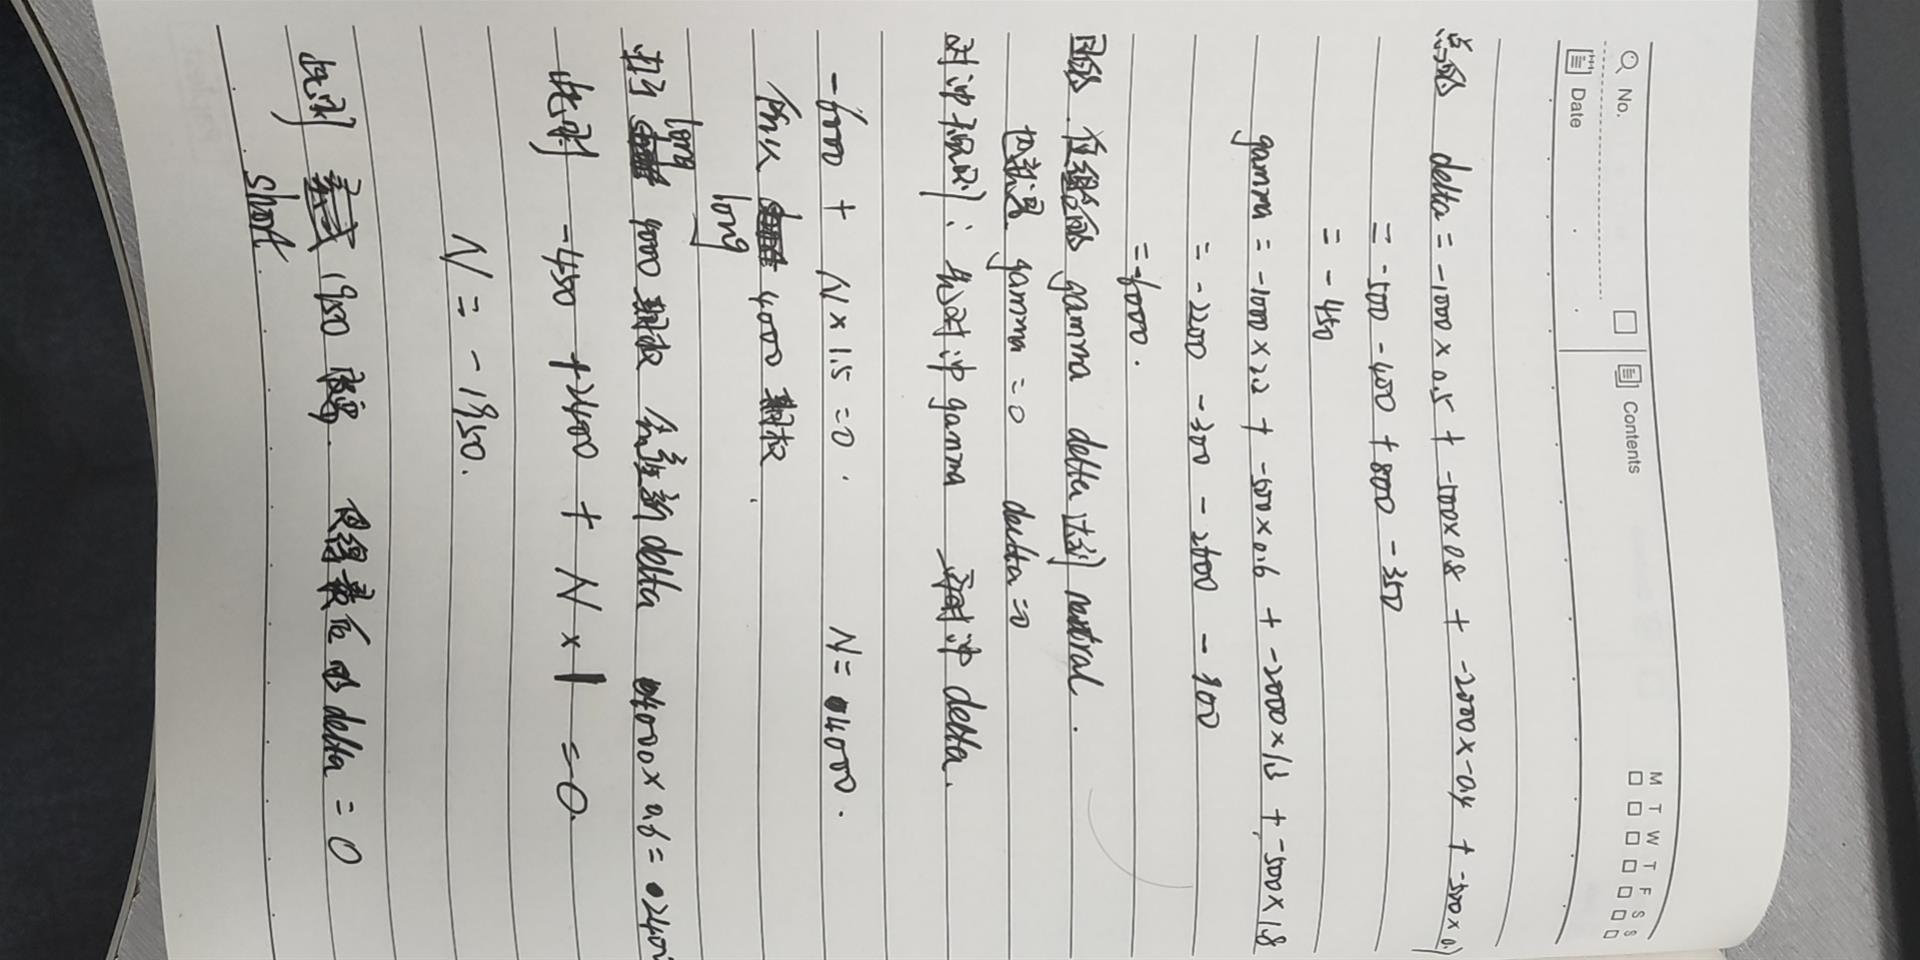 No.
Date
Contents
M T W T F S S
总的 delta = -1000 × 0.5 + -500×0.8 + -2000×-0.4 + -500×0.7
= -500 - 400 + 800 - 350
= - 450
gamma = -1000×2.2 + -500×0.6 + -2000×1.3 + -500×1.8
= -2200 - 300 - 2600 - 900
= -6000.
目的 使组合的 gamma delta 达到 neutral.
也就是 gamma = 0 delta = 0
对冲原则: 先对冲 gamma 再对冲 delta.
-6000 + N × 1.5 = 0. N = 4000.
所以 long 4000 期权
打了 long 4000 期权 会产生新 delta 4000 × 0.6 = 2400
此时 -450 + 2400 + N × 1 = 0.
N = - 1950.
此时 short 1950 使得最后的 delta = 0